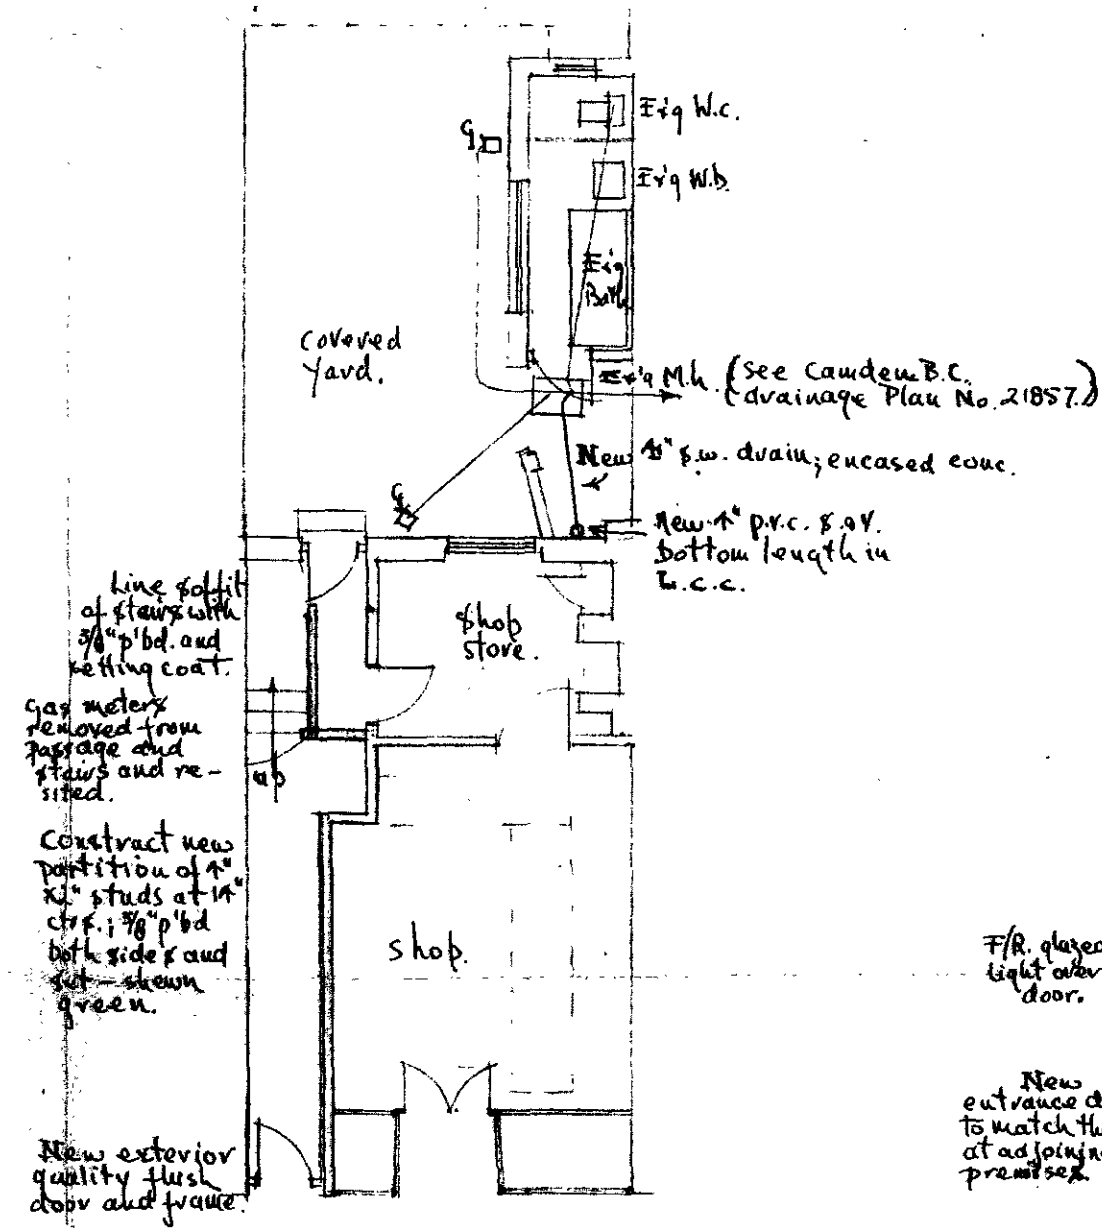 Ex'g W.C.
G
Ex'g W.b.
Ex'g
Bath
covered
yard.
Ex'g M.h. (see Camden B.C.
drainage Plan No. 21857.)
New 4" s.w. drain; encased conc.
G
New 4" p.v.c. s.&v.
bottom length in
L.c.c.
Line soffit
of stairs with
3/8" p'bd. and
setting coat.
shop
store.
Gas meters
removed from
passage and
stairs and re-
sited.
up
Construct new
partition of 4"
x2" studs at 14"
ctrs.; 3/8" p'bd
both sides and
set - shewn
green.
shop.
F/R. glazed
light over
door.
New
entrance d
to match th
at adjoining
premises.
New exterior
quality flush
door and frame.